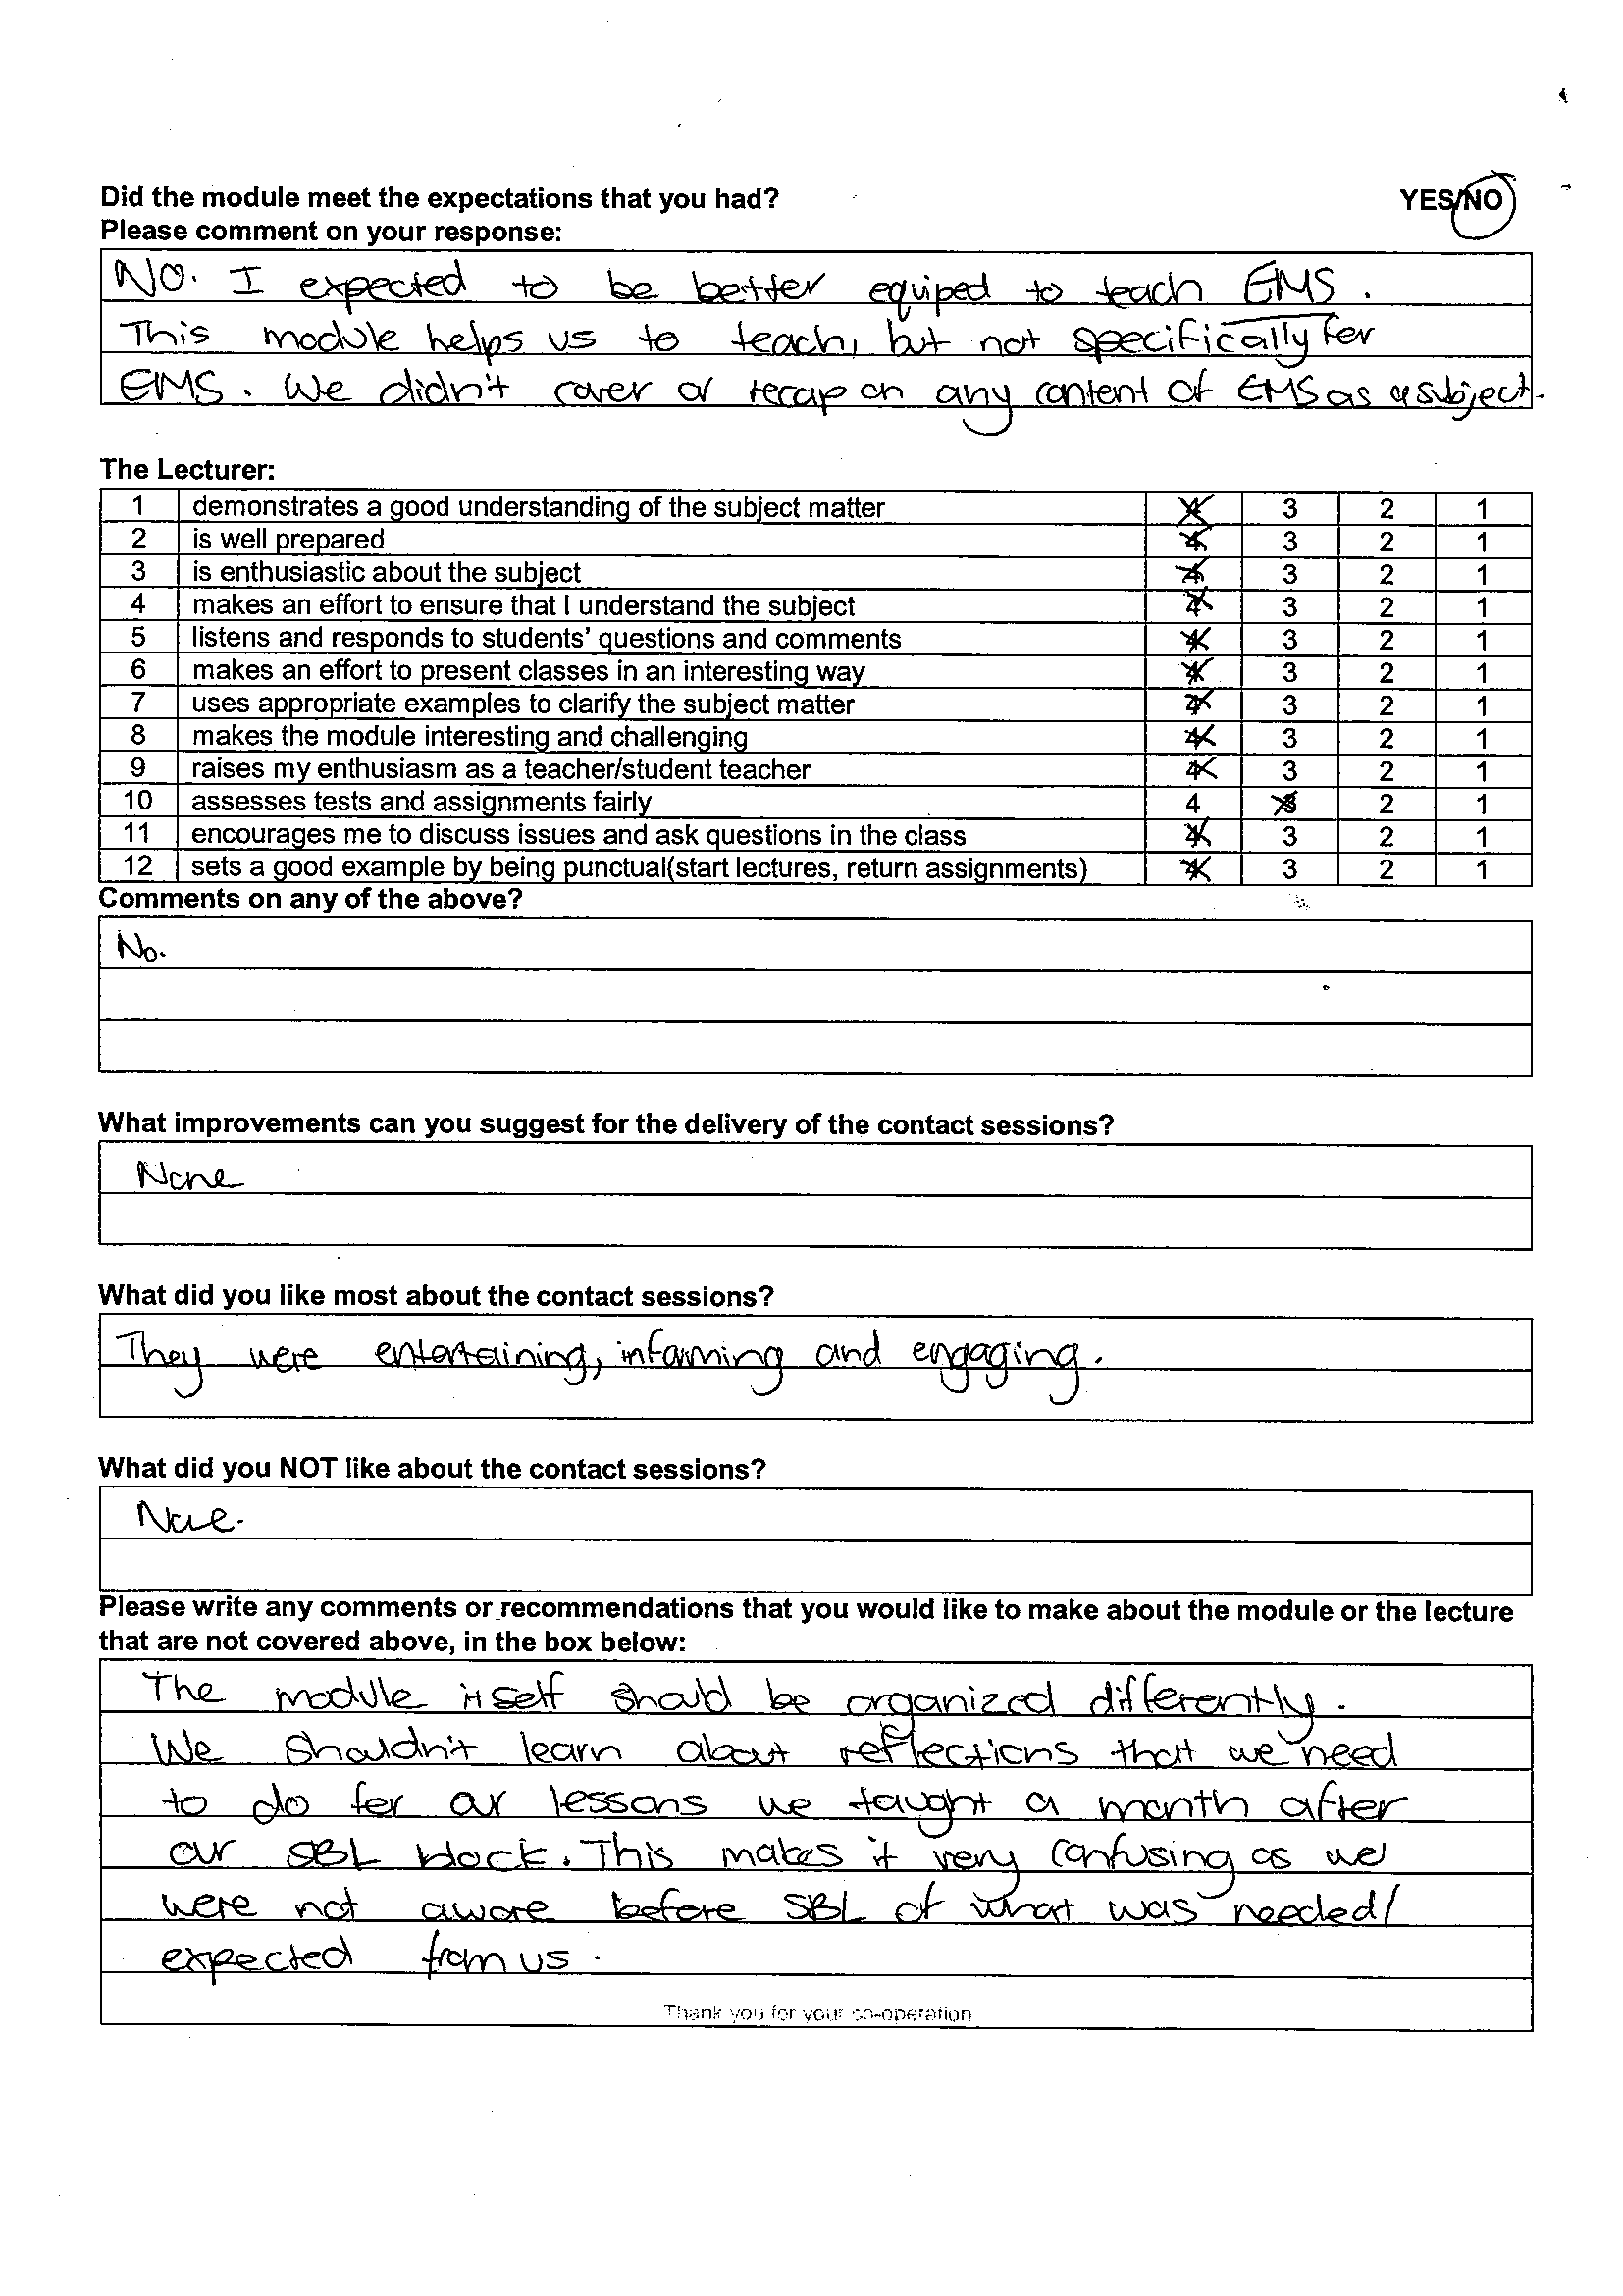 Did the module meet the expectations that you had? YES/NO
Please comment on your response:
NO. I expected to be better equiped to teach EMS.
This module helps us to teach, but not specifically for
EMS. We didn't cover or recap on any content of EMS as a subject.
The Lecturer:
1 demonstrates a good understanding of the subject matter 4 3 2 1
2 is well prepared 4 3 2 1
3 is enthusiastic about the subject 4 3 2 1
4 makes an effort to ensure that I understand the subject 4 3 2 1
5 listens and responds to students' questions and comments 4 3 2 1
6 makes an effort to present classes in an interesting way 4 3 2 1
7 uses appropriate examples to clarify the subject matter 4 3 2 1
8 makes the module interesting and challenging 4 3 2 1
9 raises my enthusiasm as a teacher/student teacher 4 3 2 1
10 assesses tests and assignments fairly 4 3 2 1
11 encourages me to discuss issues and ask questions in the class 4 3 2 1
12 sets a good example by being punctual(start lectures, return assignments) 4 3 2 1
Comments on any of the above?
No.
What improvements can you suggest for the delivery of the contact sessions?
None
What did you like most about the contact sessions?
They were entertaining, informing and engaging.
What did you NOT like about the contact sessions?
None.
Please write any comments or recommendations that you would like to make about the module or the lecture
that are not covered above, in the box below:
The module itself should be organized differently.
We shouldn't learn about reflections that we need
to do for our lessons we taught a month after
our SBL block. This makes it very confusing as we
were not aware before SBL of what was needed/
expected from us.
Thank you for your co-operation